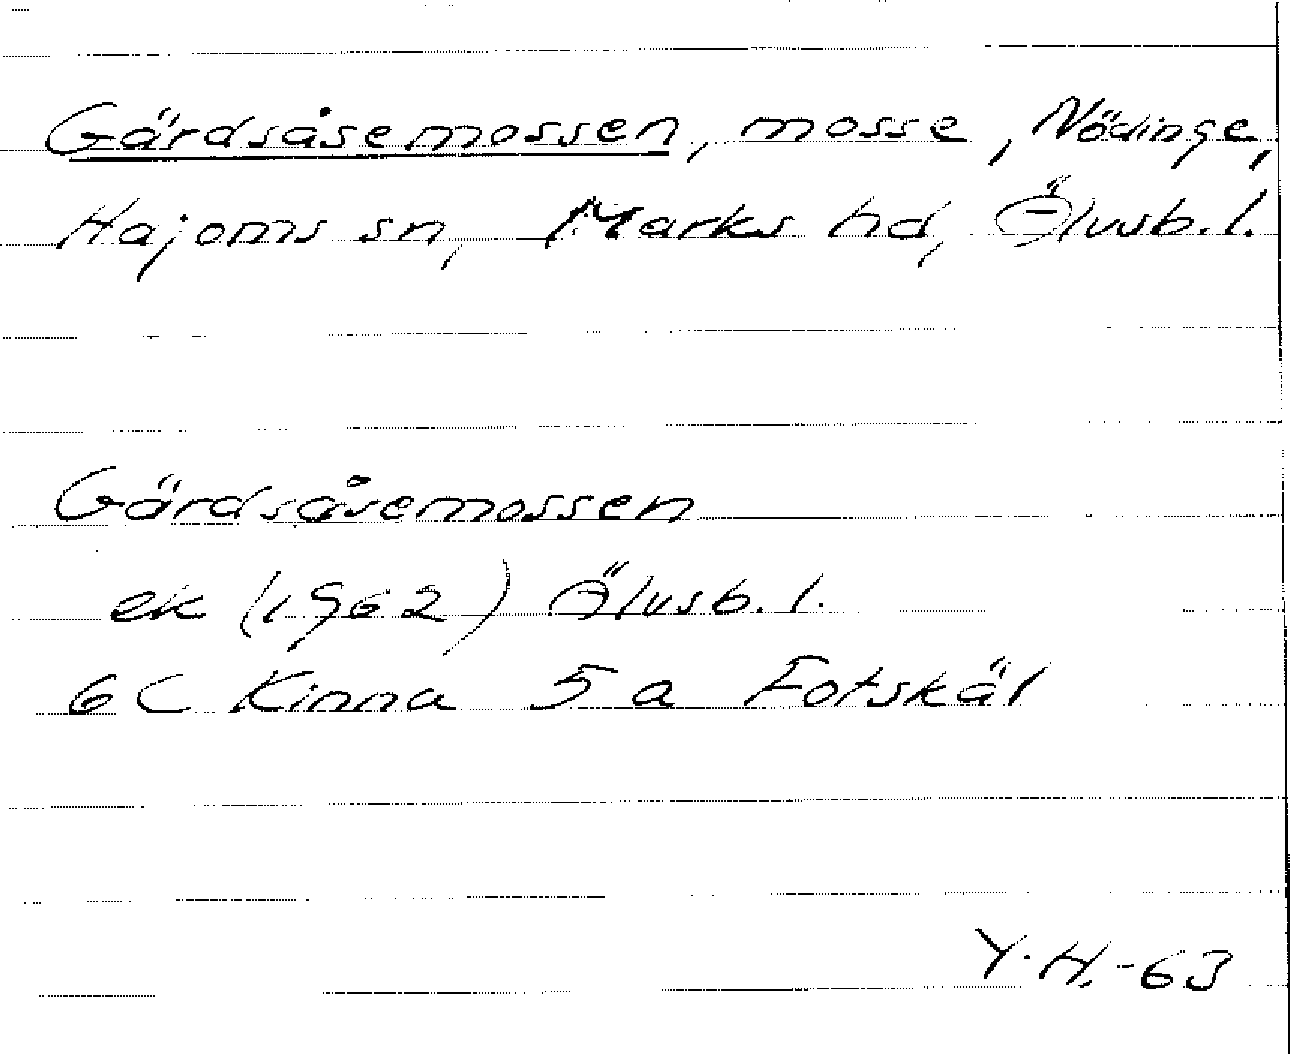 Gärdsåsemossen, mosse, Nödinge,
Hajoms sn, Marks hd, Älvsb. l.
Gärdsåsemossen
ek (1962) Älvsb. l.
6C Kinna 5a Fotskäl
Y. H. -63